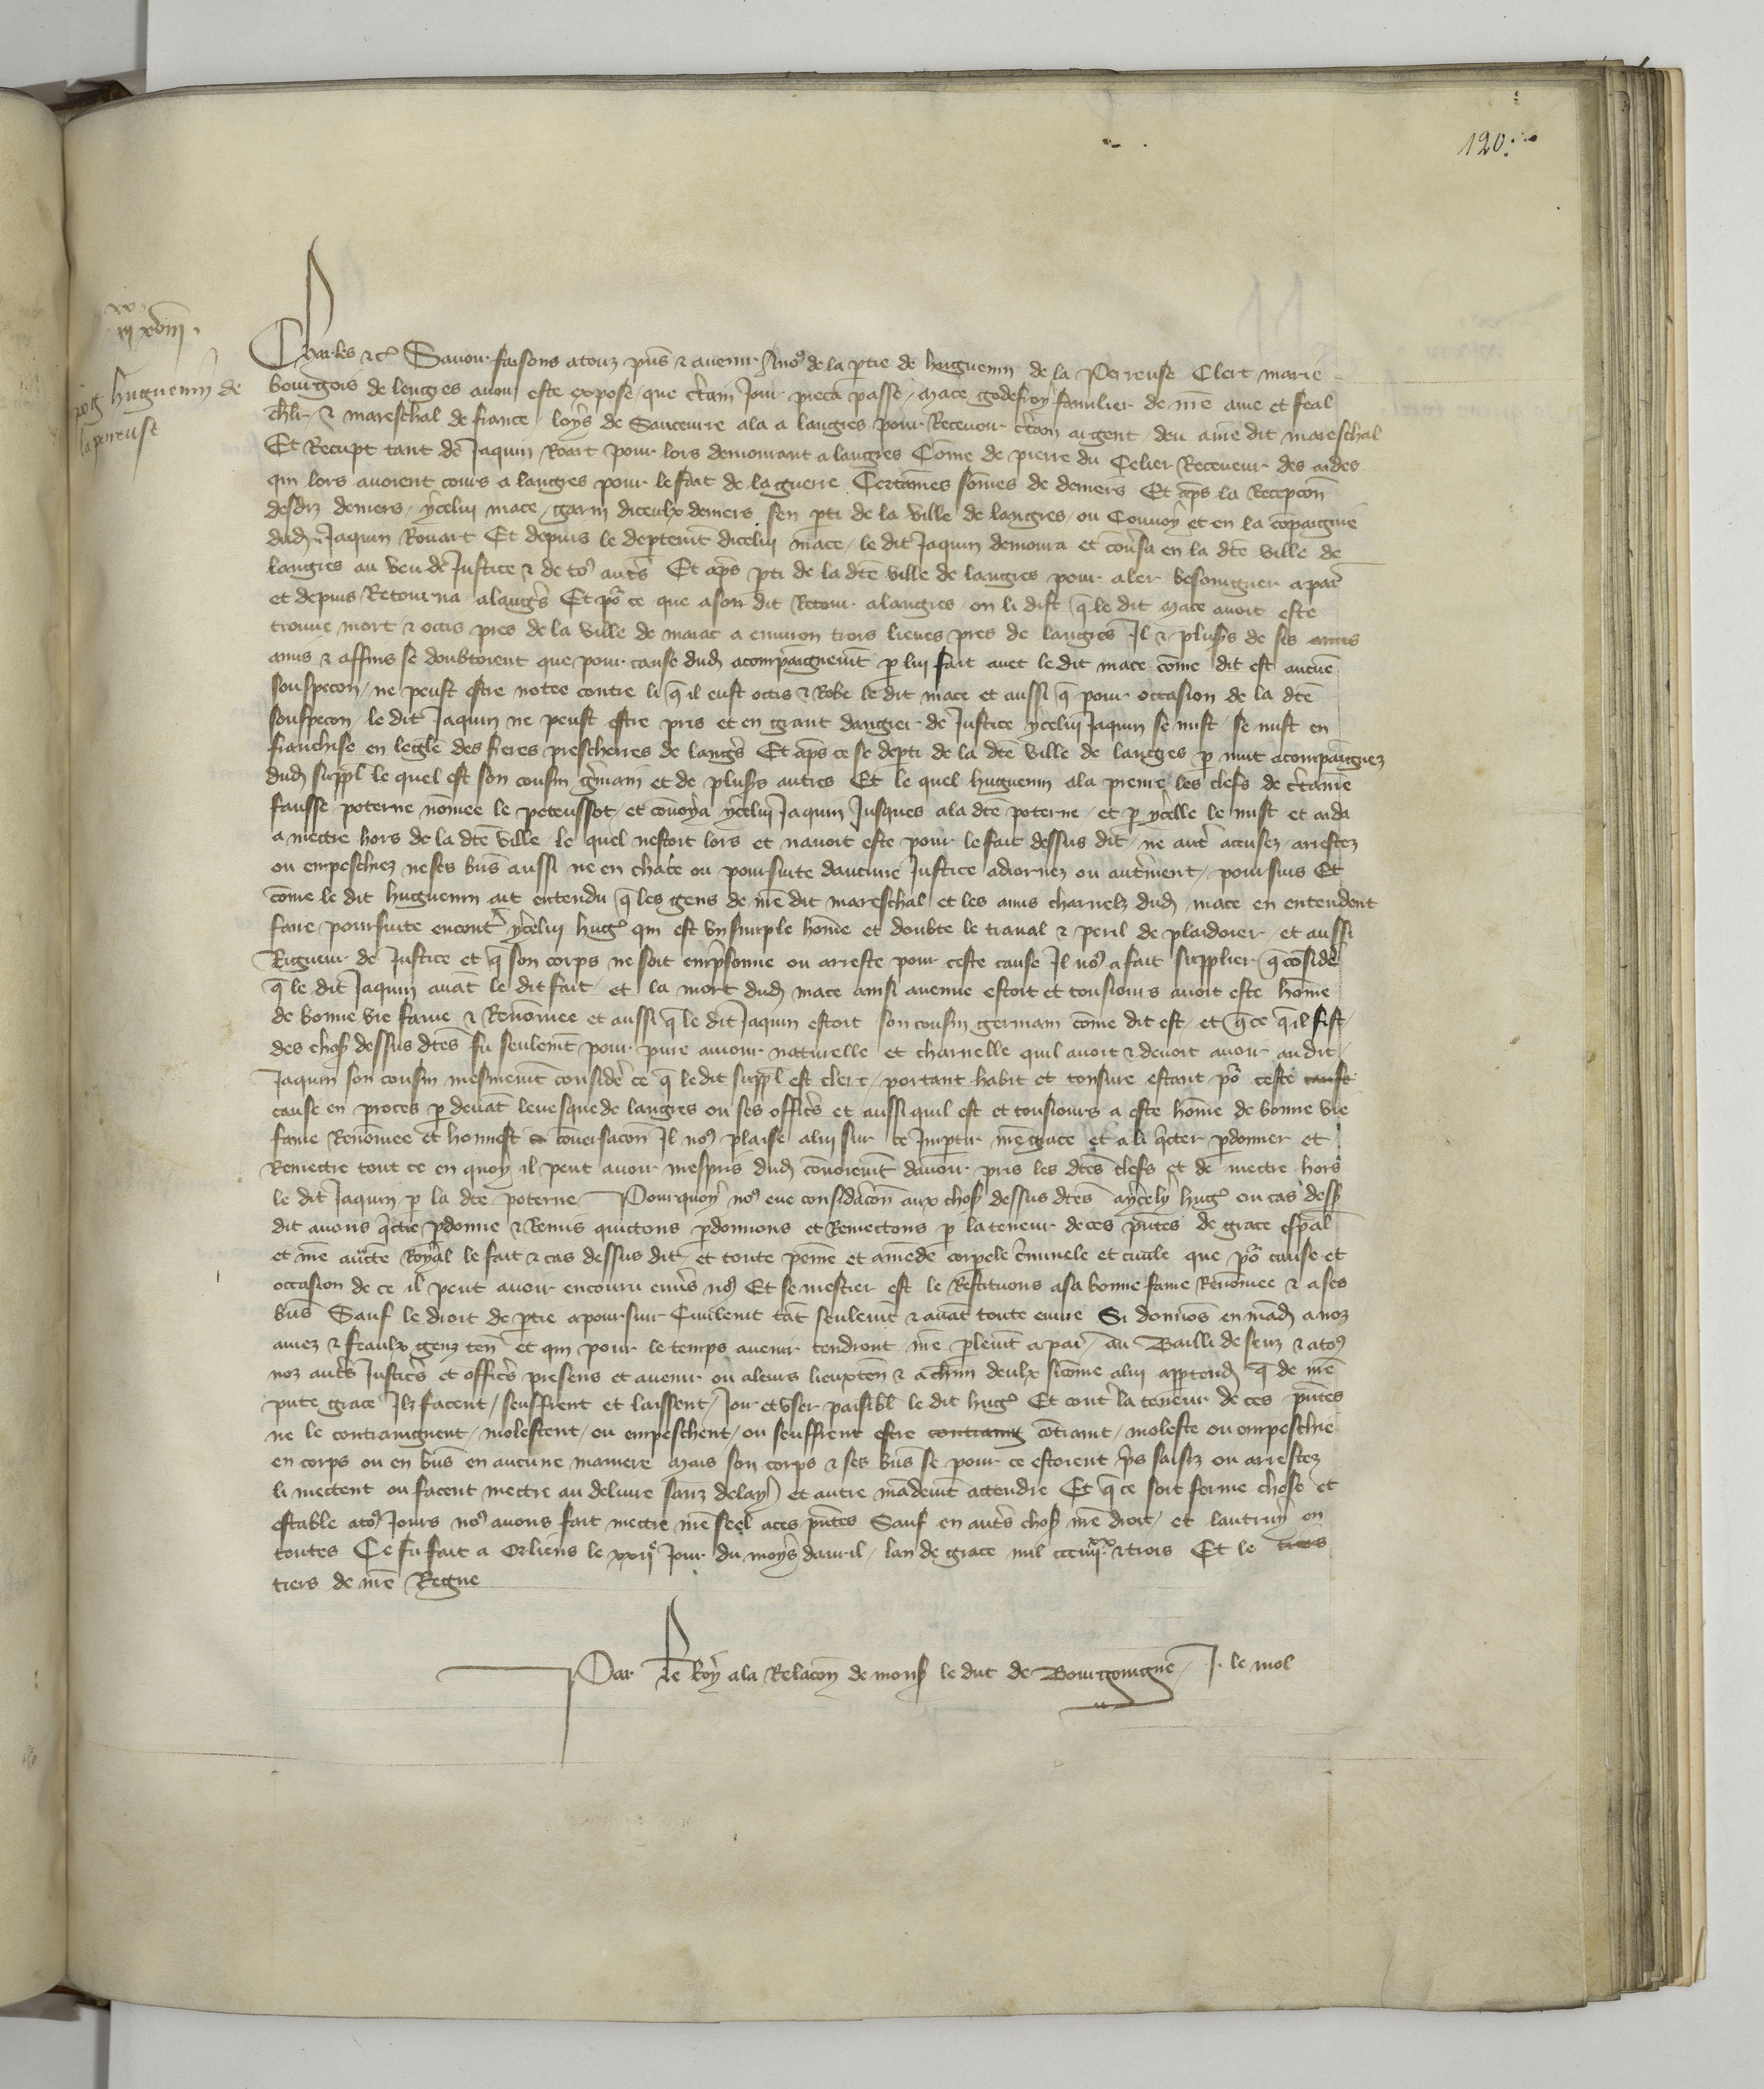 120
xx
iiij xviij
pro Huguenin de
la perreuse
Charles &c Savoir faisons a touz pns & avenir / A nos de la ptie de huguenin de la Perreuse Clerc marie
bourgois de lengres avoir este expose / que ctain Jour pieca passe / Mace godefroy familier de nre ame et feal
chlr & mareschal de france / loys de Sanceurre ala a langres pour Recevoir ctain argent deu a nre dit mareschal
Et Recupt tant de Jaquin Roart pour lors demourant a langres Come de pierre du Celier Receveur des aides
qui lors avoient cours a langres pour le fait de la guerre Certaines somes de deniers Et aps la Recepcon
desdiz deniers / ycelui mace / garni diceulx deniers sen pti de la ville de langres / ou Convoy et en la copaignie
dud Jaquin Rouart Et depuis le deptemt dicelui mace / le dit Jaquin demoura et conversa en la dte ville de
langres au veu de Justice & de tos auts Et aps pti de la dte ville de langres pour aler besoingner a par
et depuis Retourna a langrs Et po ce que a son dit Retour a langres on li dist q le dit Mace avoit este
trouve mort & occis pres de la ville de marac a environ trois lieues pres de langres Il & plusrs de ses amis
amis & affins se doubtoient que pour cause dud acompaignemt p lui fait avec le dit mace come dit est aucune
souspecon / ne peust estre notee contre li q il eust occis & Robe le dit mace et aussi q pour occasion de la dte
souspecon / le dit Jaquin ne peust estre pris et en grant dangier de Justice ycelui Jaquin se mist se mist en
franchise en leglise des freres prescheurs de langrs Et aps ce se depti de la dte ville de langres p nuit acompaignez
dud suppl le quel est son cousin gmain et de plusrs autres Et le quel huguenin ala prenre les clefs de ctaine
fausse poterne nomee le peteusset / et convoya ycelui Jaquin Jusques a la dte poterne / et p ycelle le mist et aida
a mectre hors de la dte ville / le quel nestoit lors et navoit este pour le fait dessus dit ne autr accusez / arrestez
ou empeschiez ne ses bns aussi ne en chace ou poursuite daucune Justice adiornez ou autrement / poursuis Et
come le dit huguenin ait entendu q les gens de nre dit mareschal et les amis charnelz dud mace en entendent
faire poursuite encontr ycelui hug qui est un simple home et doubte le traval & peril de plaidoier / et aussi
Rigueur de Justice et q son corps ne soit emprisonne ou arreste pour ceste cause Il nos a fait supplier q considere
q le dit Jaquin avat le dit fait / et la mort dud mace ainsi avenue estoit et tousiours avoit este home
de bonne vie fame & Renomee et aussi q le dit Jaquin estoit son cousin germain come dit est / et q ce q il fist /
des chos dessus dtes fu seulemt pour pure amour naturelle et charnelle quil avoit & devoit avoir au dit /
Jaquin son cousin mesmemt considere ce q le dit suppl est clerc / portant habit et tonsure estant po ceste cause
cause en proces p devat levesque de langres ou ses officrs et aussi quil est et tousiours a este home de bonne vie
fame Renomee et honneste conversacon Il nos plaise a lui sur ce Impartir nre grace et a li qcter pdonner et
Remectre tout ce en quoy il peut avoir mespris dud convoiemt davoir pris les dtes clefs et de mectre hors
le dit Jaquin p la dte poterne Pourquoy nos eue consideracon aux chos dessus dtes a ycely hug ou cas dess
dit avons qctie pdonne & Remis quictons pdonnons et Remectons p la teneur de ces pntes de grace espal
et nre aucte Royal le fait & cas dessus dit / et toute peine et amende corpele criminele et civile que po cause et
occasion de ce il peut avoir encouru envrs nos Et se mestier est le Restituons a sa bonne fame Renomee & a ses
bns Sauf le droit de ptie a poursuir Civilemt tat seulemt & avat toute euvre Si donnos en mad a noz
amez & feaulx genz ten et qui pour le temps avenir tendront nre plemt a par au Bailli de senz & a tos
noz autrs Justicrs et officrs presens et avenir ou a leurs lieuxten & a chun deulx sicome a lui apptend q de nre
pnte grace Ilz facent / seuffrent et laissent / Joir et user paisibl le dit hug Et contr la teneur de ces pntes
ne le contraingnent / molestent / ou empeschent / ou seuffrent estre contraing contraint / moleste ou empeschie
en corps ou en bns en aucune maniere mais son corps & ses bns se pour ce estoient pris saisiz ou arrestez
li mectent ou facent mectre au delivre sanz delay et autre mademt actendre Et q ce soit ferme chose et
estable a tos Jours nos avons fait mectre nre seel a ces pntes Sauf en autrs chos nre droit / et lautruy en
toutes Ce fu fait a Orliens le xxije Jour du moys davril / lan de grace mil ccc iiijxx & trois Et le trois
tiers de nre Regne
Par le Roy a la Relacon de mons le duc de Bourgoingne / J. le mol